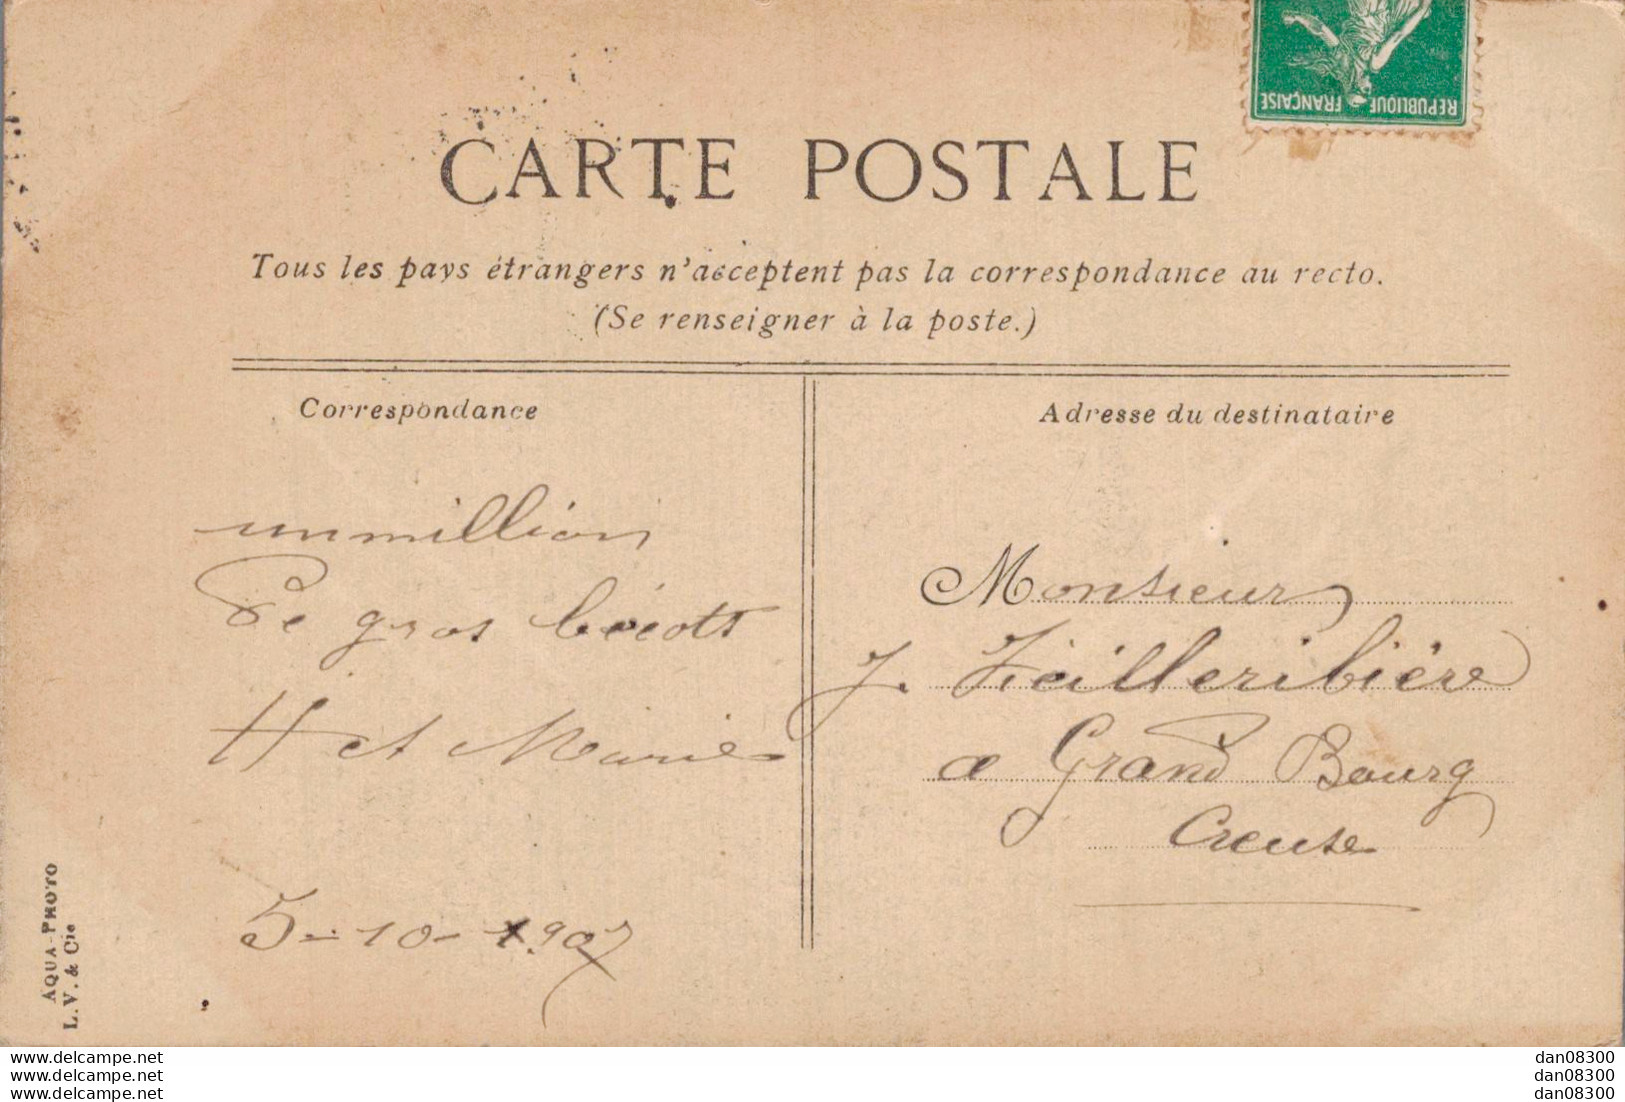 REPUBLIQUE FRANÇAISE
CARTE POSTALE
Tous les pays étrangers n'acceptent pas la correspondance au recto.
(Se renseigner à la poste.)
Correspondance
un million
De gros bécots
H et Marie
5-10-1907
Adresse du destinataire
Monsieur
J. Vieilleribière
a Grand Bourg
Creuse
AQUA-PHOTO
L.V. & Cie
www.delcampe.net
www.delcampe.net
www.delcampe.net
dan08300
dan08300
dan08300